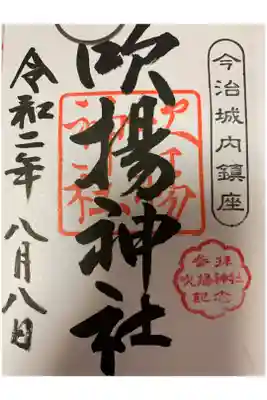 今治城内鎮座
吹揚神社
吹揚
神社
令和二年八月八日
参拝
吹揚神社
記念